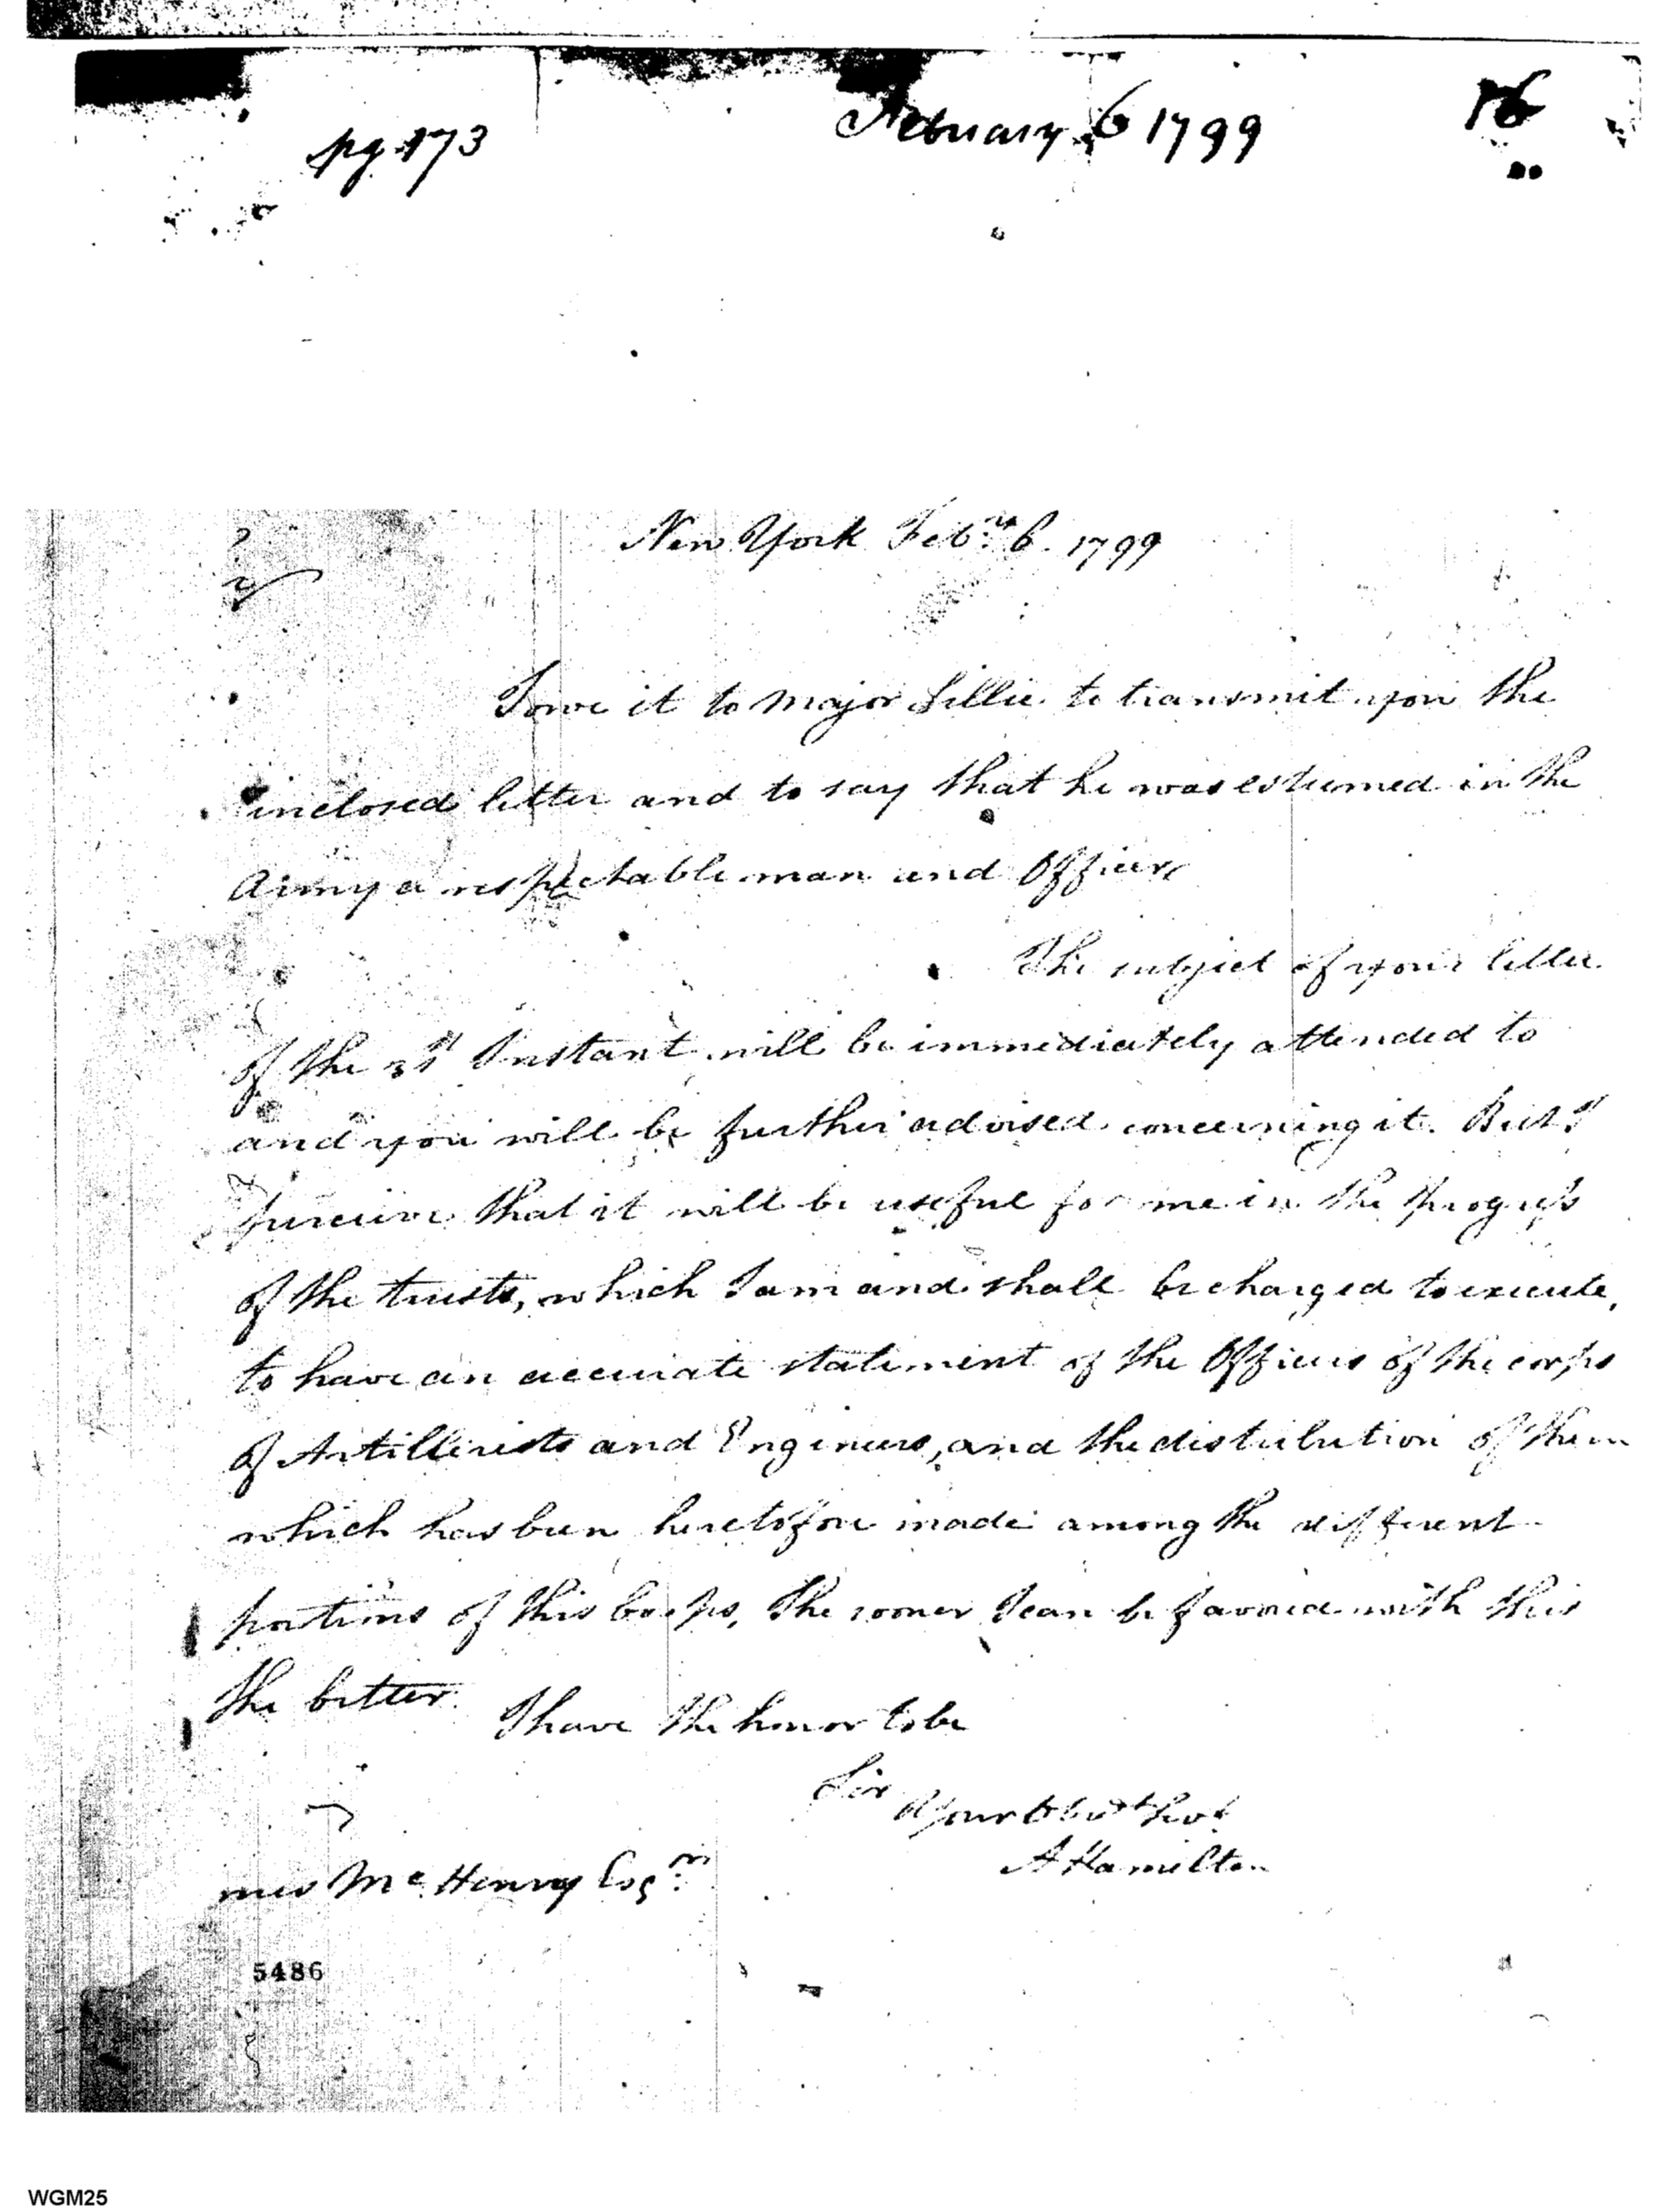 pg. 173
February 6 1799
New York Feby. 6. 1799
I owe it to Major Lillie to transmit you the
inclosed letter and to say that he was esteemed in the
Army a respectable man and Officer
The subject of your letter
of the Instant will be immediately attended to
and you will be further advised concerning it. But I
perceive that it will be useful for me in the progress
of the trusts, which I am and shall be charged to execute,
to have an accurate statement of the Officers of the corps
of Artillerists and Engineers, and the distribution of them
which has been heretofore made among the different
portions of this Corps. The sooner I can be favored with this
the better.
I have the honor to be
Sir
Your Obedt Servt
A Hamilton
mes McHenry Esqr.
5486
WGM25